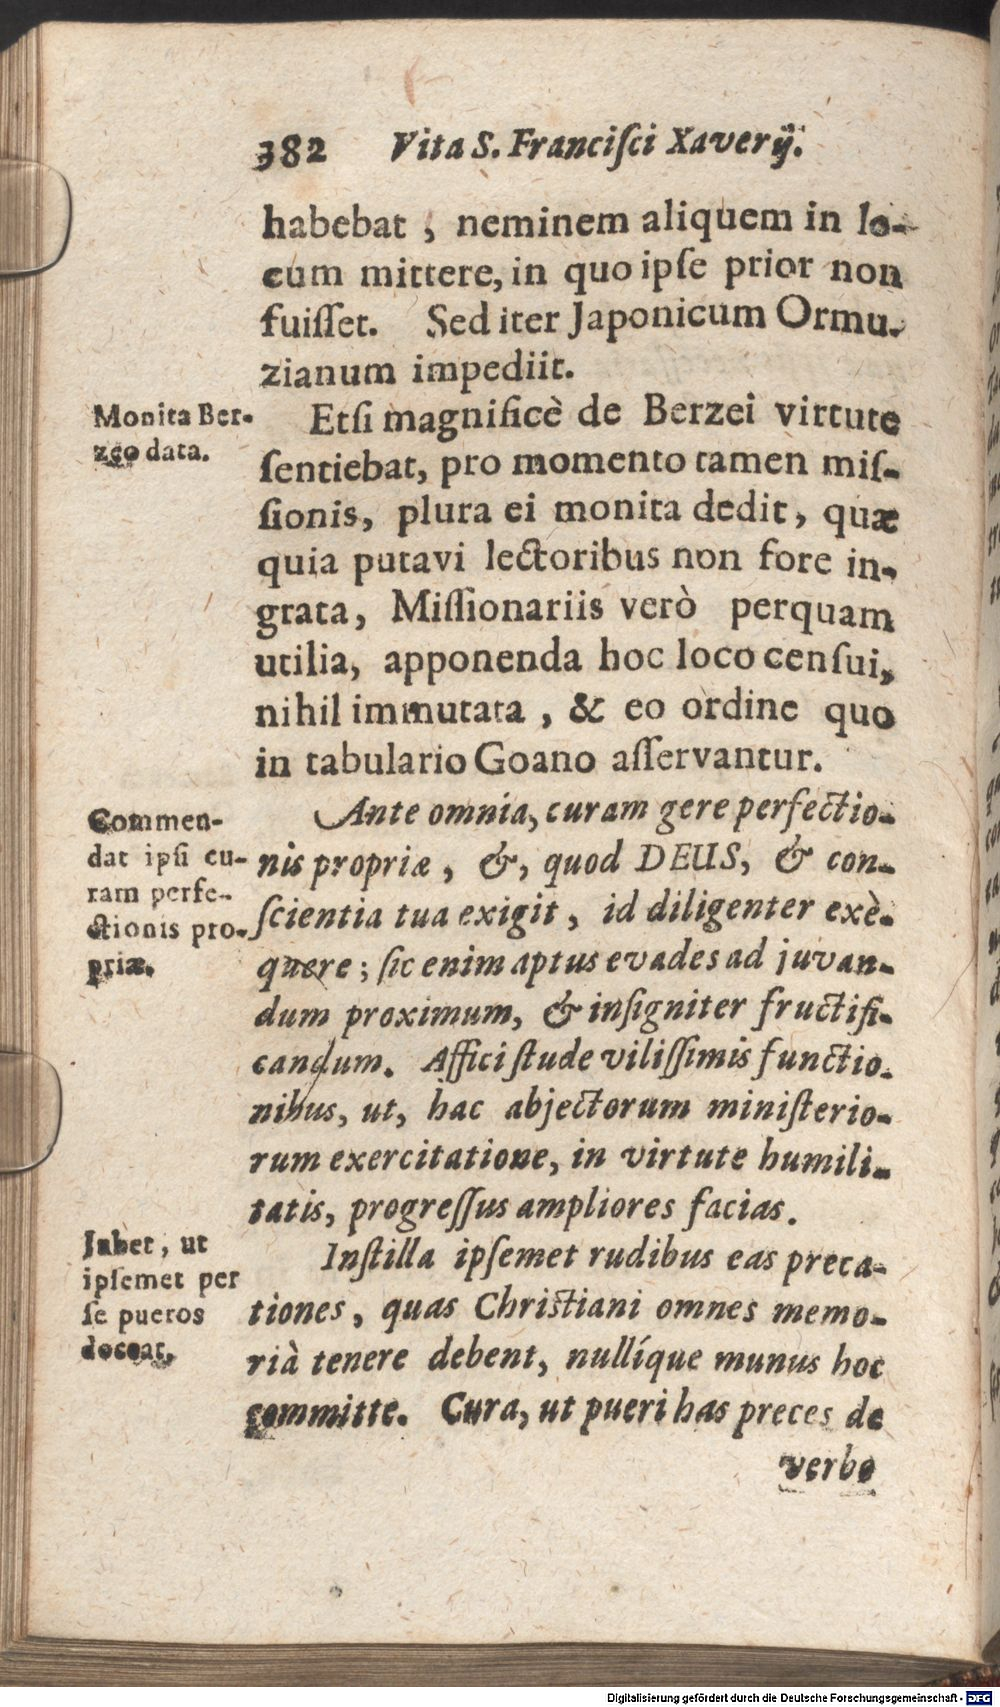 382 Vita S. Franciſci Xaverij.
habebat, neminem aliquem in lo-
cum mittere, in quo ipſe prior non
fuiſſet. Sed iter Japonicum Ormu-
zianum impediit.
Monita Ber-
zeo data.
Etſi magnificè de Berzei virtute
ſentiebat, pro momento tamen miſ-
ſionis, plura ei monita dedit, quæ
quia putavi lectoribus non fore in-
grata, Miſſionariis verò perquam
utilia, apponenda hoc loco cenſui,
nihil immutata, & eo ordine quo
in tabulario Goano aſſervantur.
Commen-
dat ipſi cu-
ram perfe-
ctionis pro-
priæ.
Ante omnia, curam gere perfectio-
nis propriæ, &, quod DEUS, & con-
ſcientia tua exigit, id diligenter exè-
quere; ſic enim aptus evades ad juvan-
dum proximum, & inſigniter fructifi-
candum. Affici ſtude viliſſimis functio-
nibus, ut, hac abjectorum miniſterio-
rum exercitatione, in virtute humili-
tatis, progreſſus ampliores facias.
Jubet, ut
ipſemet per
ſe pueros
doceat.
Inſtilla ipſemet rudibus eas preca-
tiones, quas Chriſtiani omnes memo-
rià tenere debent, nullíque munus hoc
committe. Cura, ut pueri has preces de
verbo
Digitalisierung gefördert durch die Deutsche Forschungsgemeinschaft - DFG